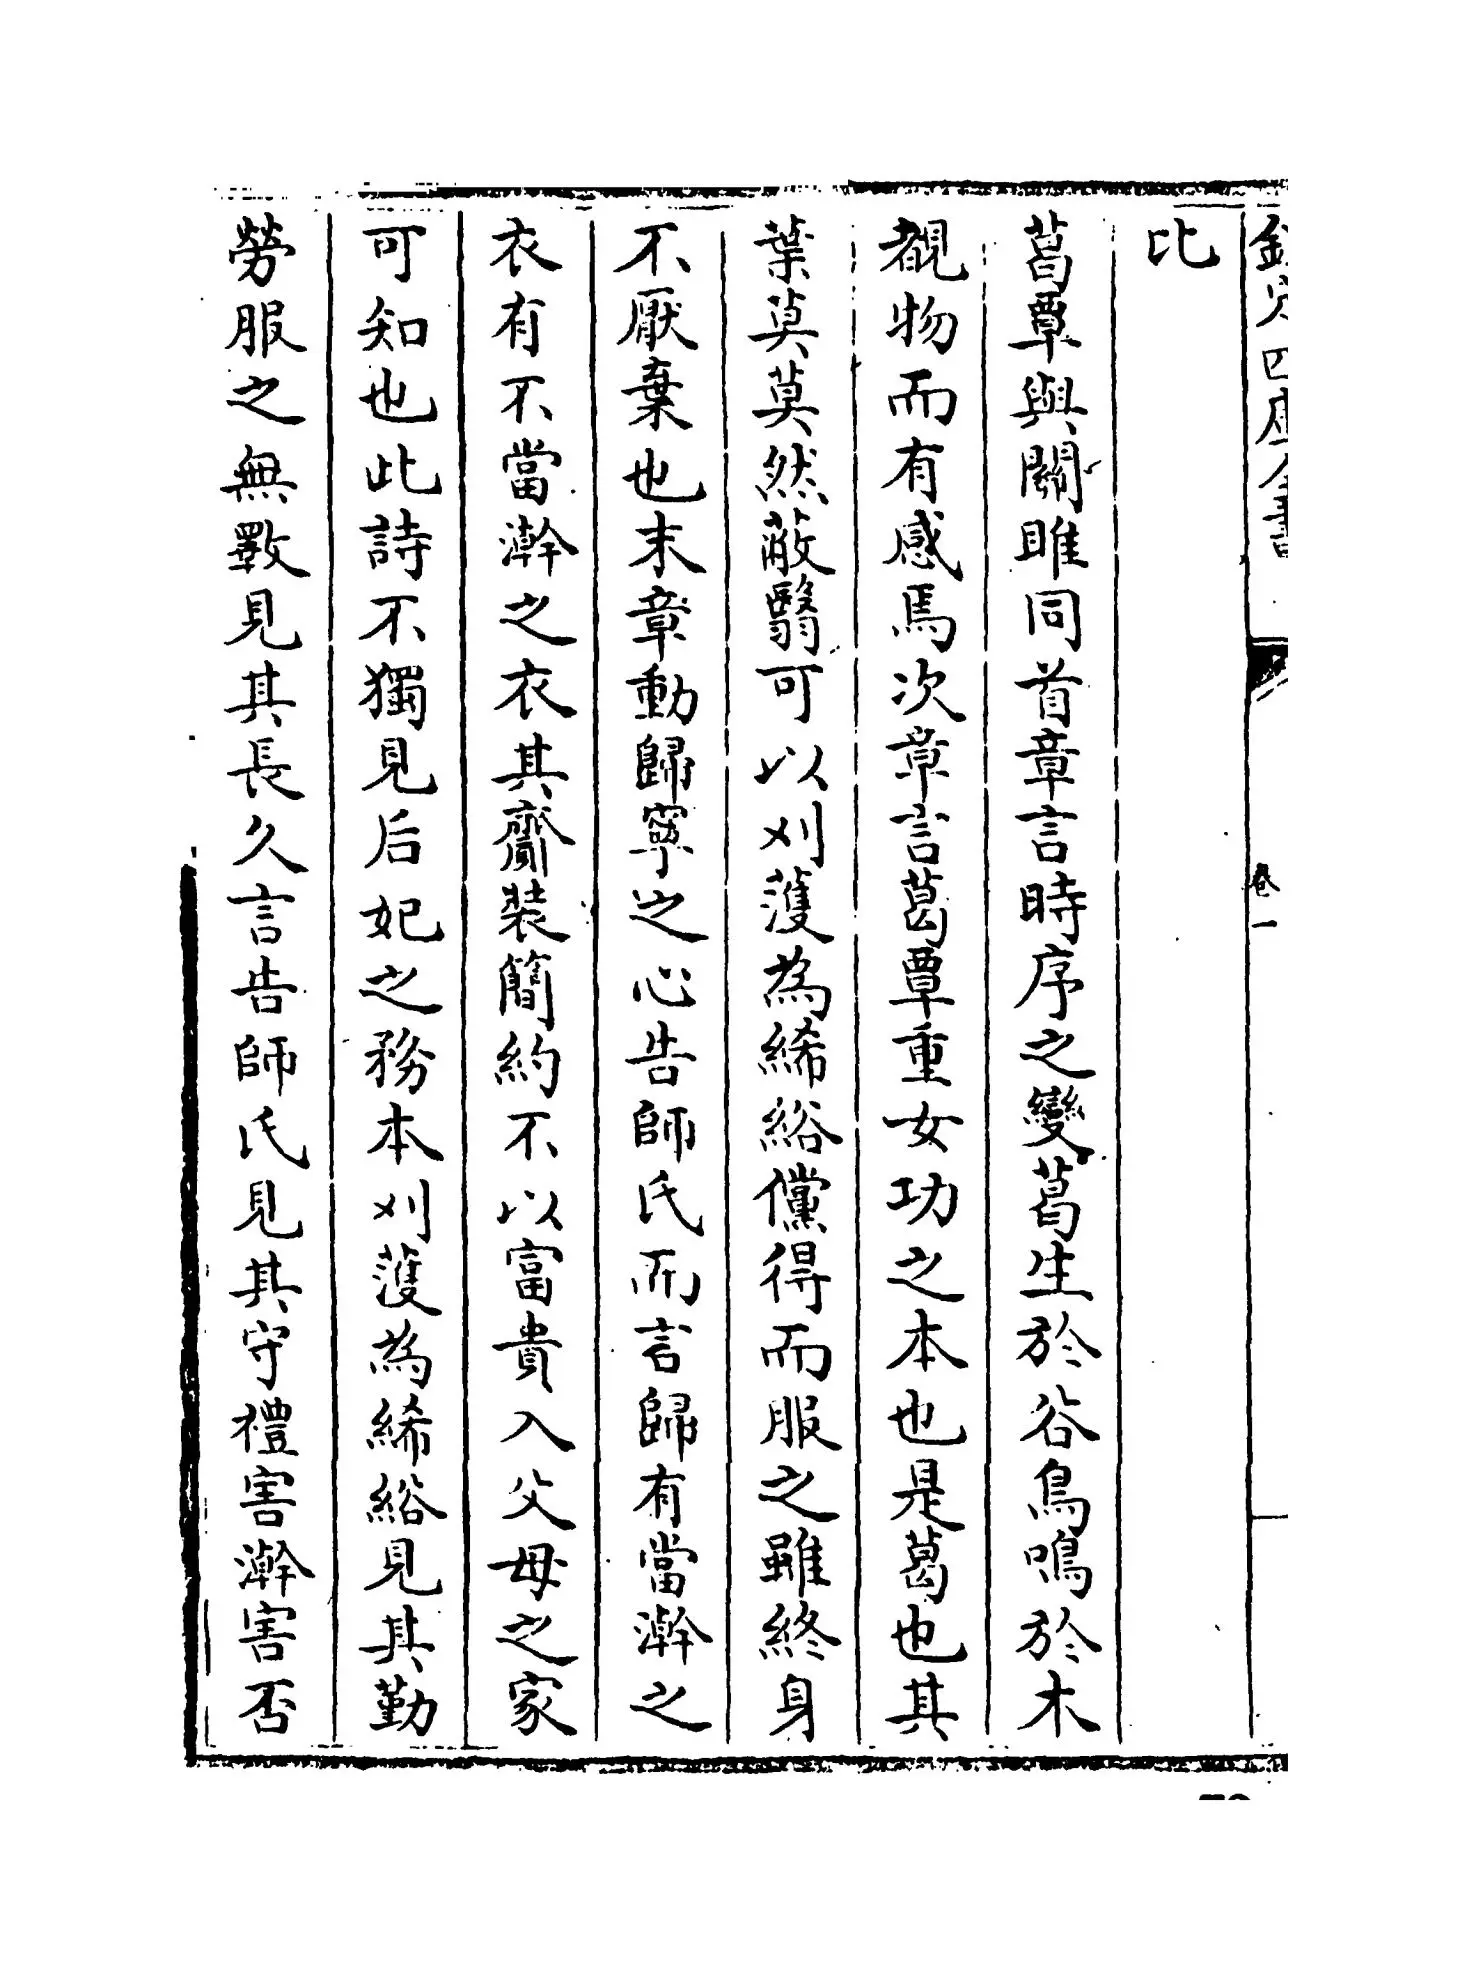 欽定四庫全書
卷一
比
葛覃與關雎同首章言時序之變葛生於谷鳥鳴於木
覩物而有感焉次章言葛覃重女功之本也是葛也其
葉莫莫然蔽翳可以刈濩為絺綌儻得而服之雖終身
不厭棄也末章動歸寧之心告師氏而言歸有當澣之
衣有不當澣之衣其齎裝簡約不以富貴入父母之家
可知也此詩不獨見后妃之務本刈濩為絺綌見其勤
勞服之無斁見其長久言告師氏見其守禮害澣害否